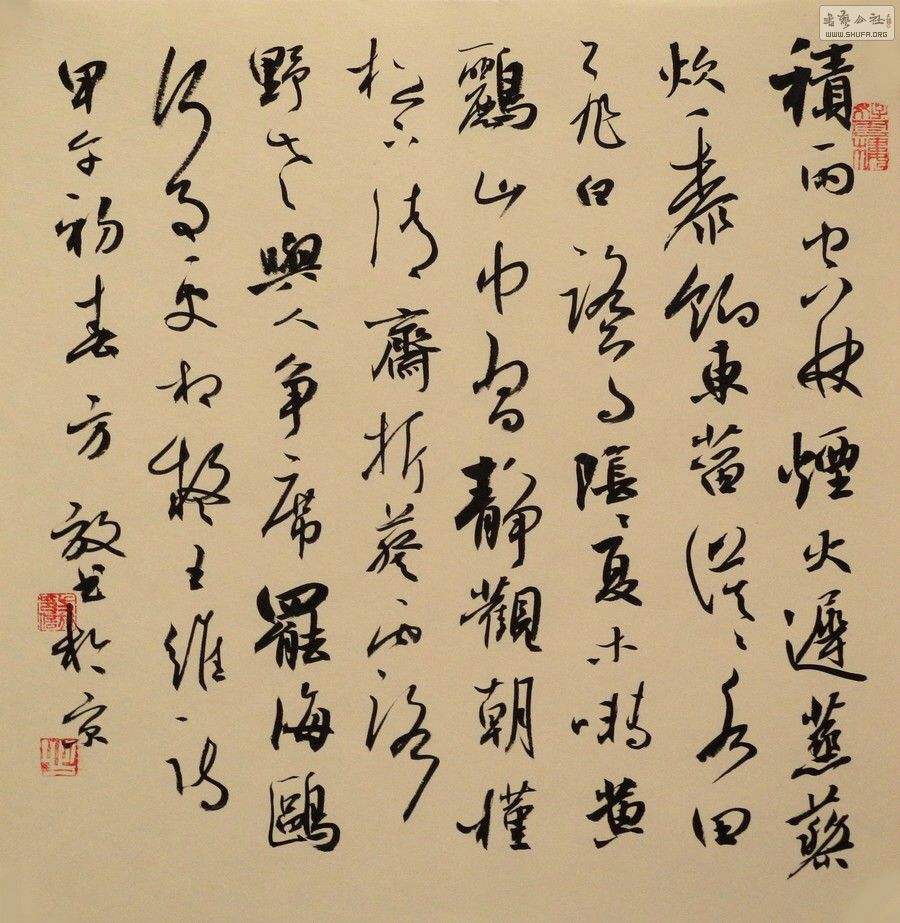 書藝公社
WWW.SHUFA.ORG
積雨空林煙火遲蒸藜
炊黍餉東菑漠〻水田
飛白鷺陰〻夏木囀黃
鸝山中習靜觀朝槿
松下清齋折葵露
野老與人爭席罷海鷗
何事更相疑王維詩
甲午初春方放書於京